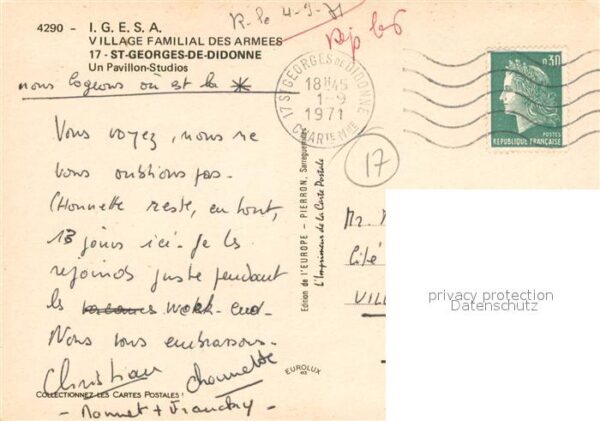 R. le 4-9-71
Rep le 6
4290 - I. G. E. S. A.
VILLAGE FAMILIAL DES ARMEES
17 - ST-GEORGES-DE-DIDONNE
Un Pavillon-Studios
nous logeons où est la *
17 ST GEORGES DE DIDONNE
18H45
1-9
1971
CHARTE MME
0,30
POSTES
REPUBLIQUE FRANÇAISE
17
Vous voyez, nous ne
vous oublions pas.
Chounette reste, en tout,
13 jours ici. Je les
rejoinds juste pendant
les week-end.
Nous vous embrassons.
Christian Chounette
COLLECTIONNEZ LES CARTES POSTALES !
Edition de l'EUROPE - PIERRON, Sarreguemines
L'Imprimeur de la Carte Postale
EUROLUX
Mr.
Cité
VILL
privacy protection
Datenschutz